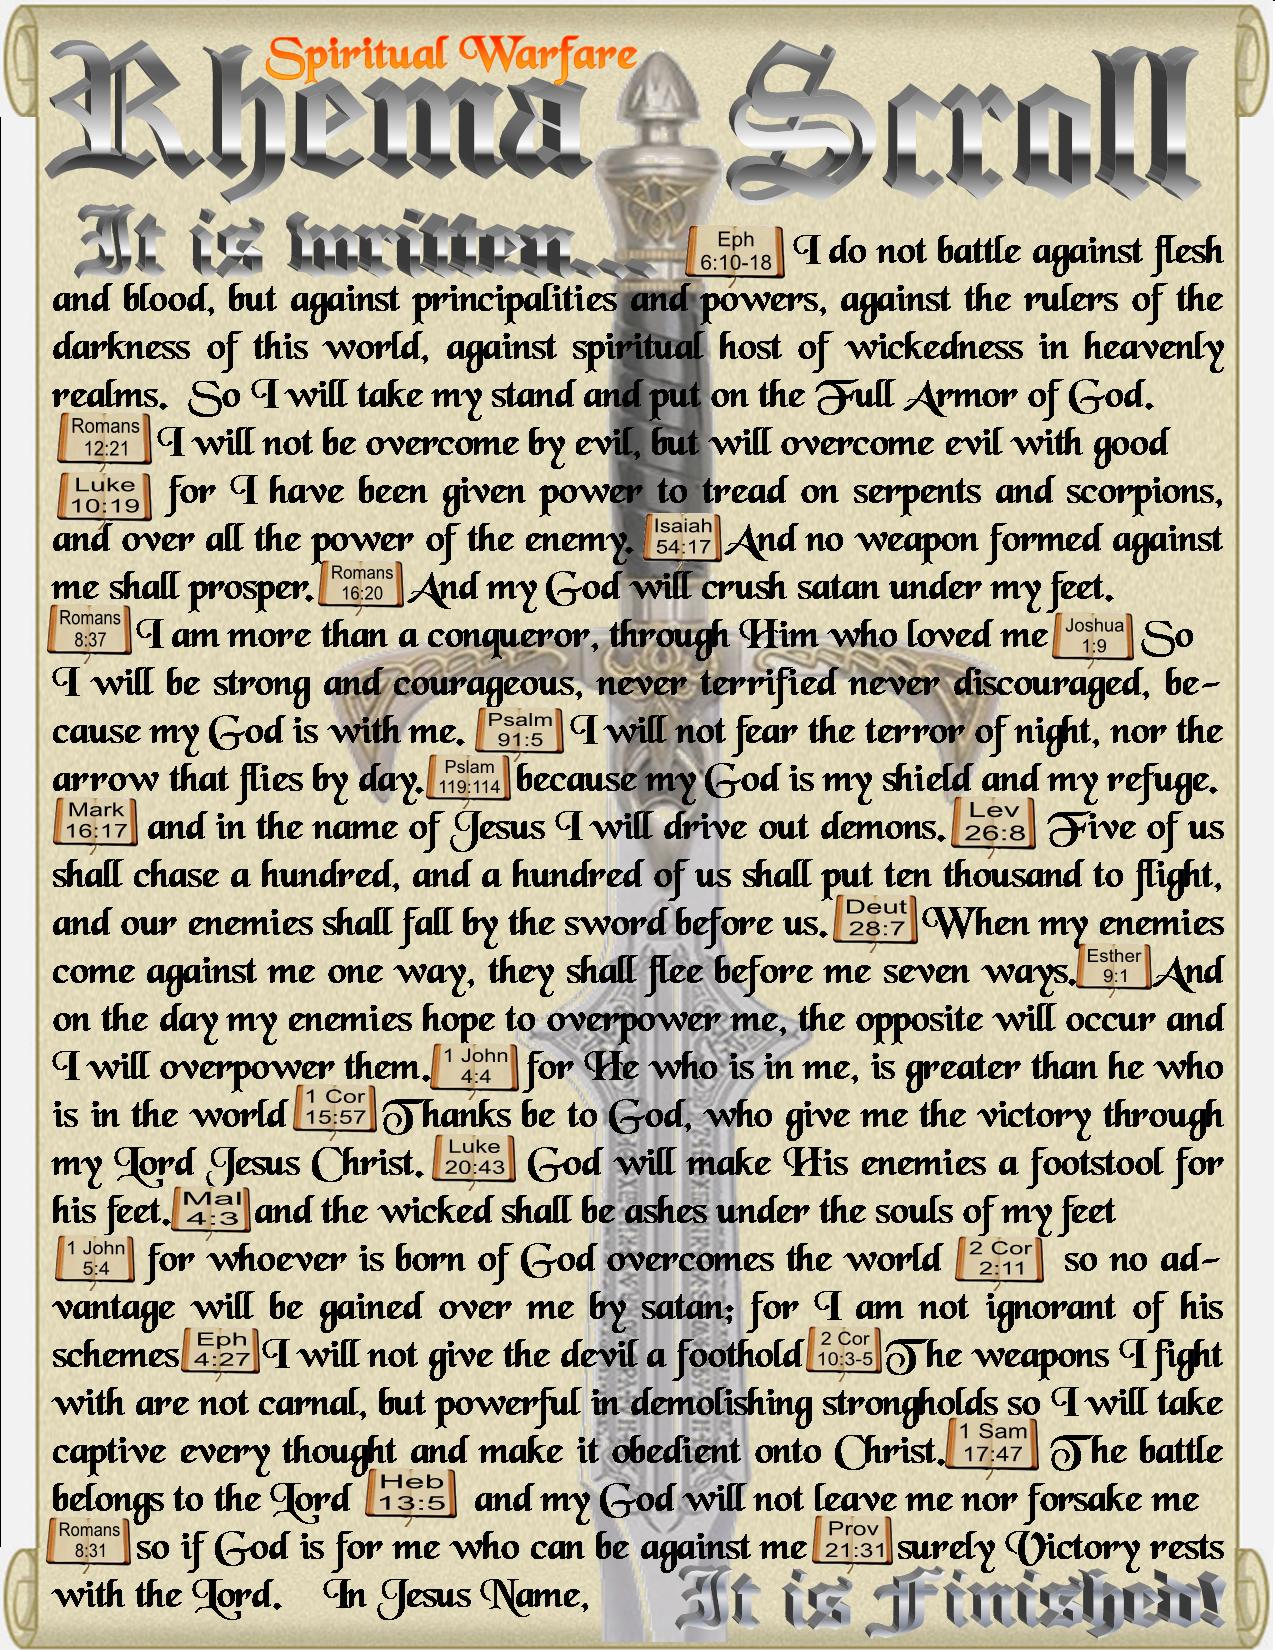 Spiritual Warfare
Rhema Scroll
It is written... Eph 6:10-18 I do not battle against flesh
and blood, but against principalities and powers, against the rulers of the
darkness of this world, against spiritual host of wickedness in heavenly
realms. So I will take my stand and put on the Full Armor of God.
Romans 12:21 I will not be overcome by evil, but will overcome evil with good
Luke 10:19 for I have been given power to tread on serpents and scorpions,
and over all the power of the enemy. Isaiah 54:17 And no weapon formed against
me shall prosper. Romans 16:20 And my God will crush satan under my feet.
Romans 8:37 I am more than a conqueror, through Him who loved me Joshua 1:9 So
I will be strong and courageous, never terrified never discouraged, be-
cause my God is with me. Psalm 91:5 I will not fear the terror of night, nor the
arrow that flies by day. Pslam 119:114 because my God is my shield and my refuge.
Mark 16:17 and in the name of Jesus I will drive out demons. Lev 26:8 Five of us
shall chase a hundred, and a hundred of us shall put ten thousand to flight,
and our enemies shall fall by the sword before us. Deut 28:7 When my enemies
come against me one way, they shall flee before me seven ways. Esther 9:1 And
on the day my enemies hope to overpower me, the opposite will occur and
I will overpower them. 1 John 4:4 for He who is in me, is greater than he who
is in the world 1 Cor 15:57 Thanks be to God, who give me the victory through
my Lord Jesus Christ. Luke 20:43 God will make His enemies a footstool for
his feet. Mal 4:3 and the wicked shall be ashes under the souls of my feet
1 John 5:4 for whoever is born of God overcomes the world 2 Cor 2:11 so no ad-
vantage will be gained over me by satan; for I am not ignorant of his
schemes Eph 4:27 I will not give the devil a foothold 2 Cor 10:3-5 The weapons I fight
with are not carnal, but powerful in demolishing strongholds so I will take
captive every thought and make it obedient onto Christ. 1 Sam 17:47 The battle
belongs to the Lord Heb 13:5 and my God will not leave me nor forsake me
Romans 8:31 so if God is for me who can be against me Prov 21:31 surely Victory rests
with the Lord. In Jesus Name, It is Finished!